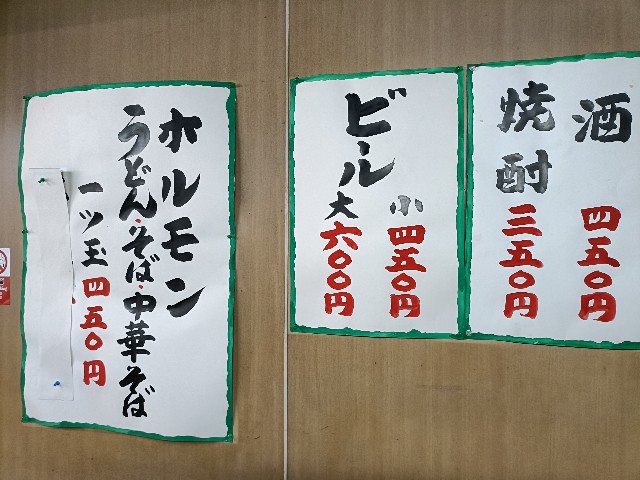 ホルモン
うどん・そば・中華そば
一ツ玉 四五〇円
ビール
小 四五〇円
大 六〇〇円
酒 四五〇円
焼酎 三五〇円